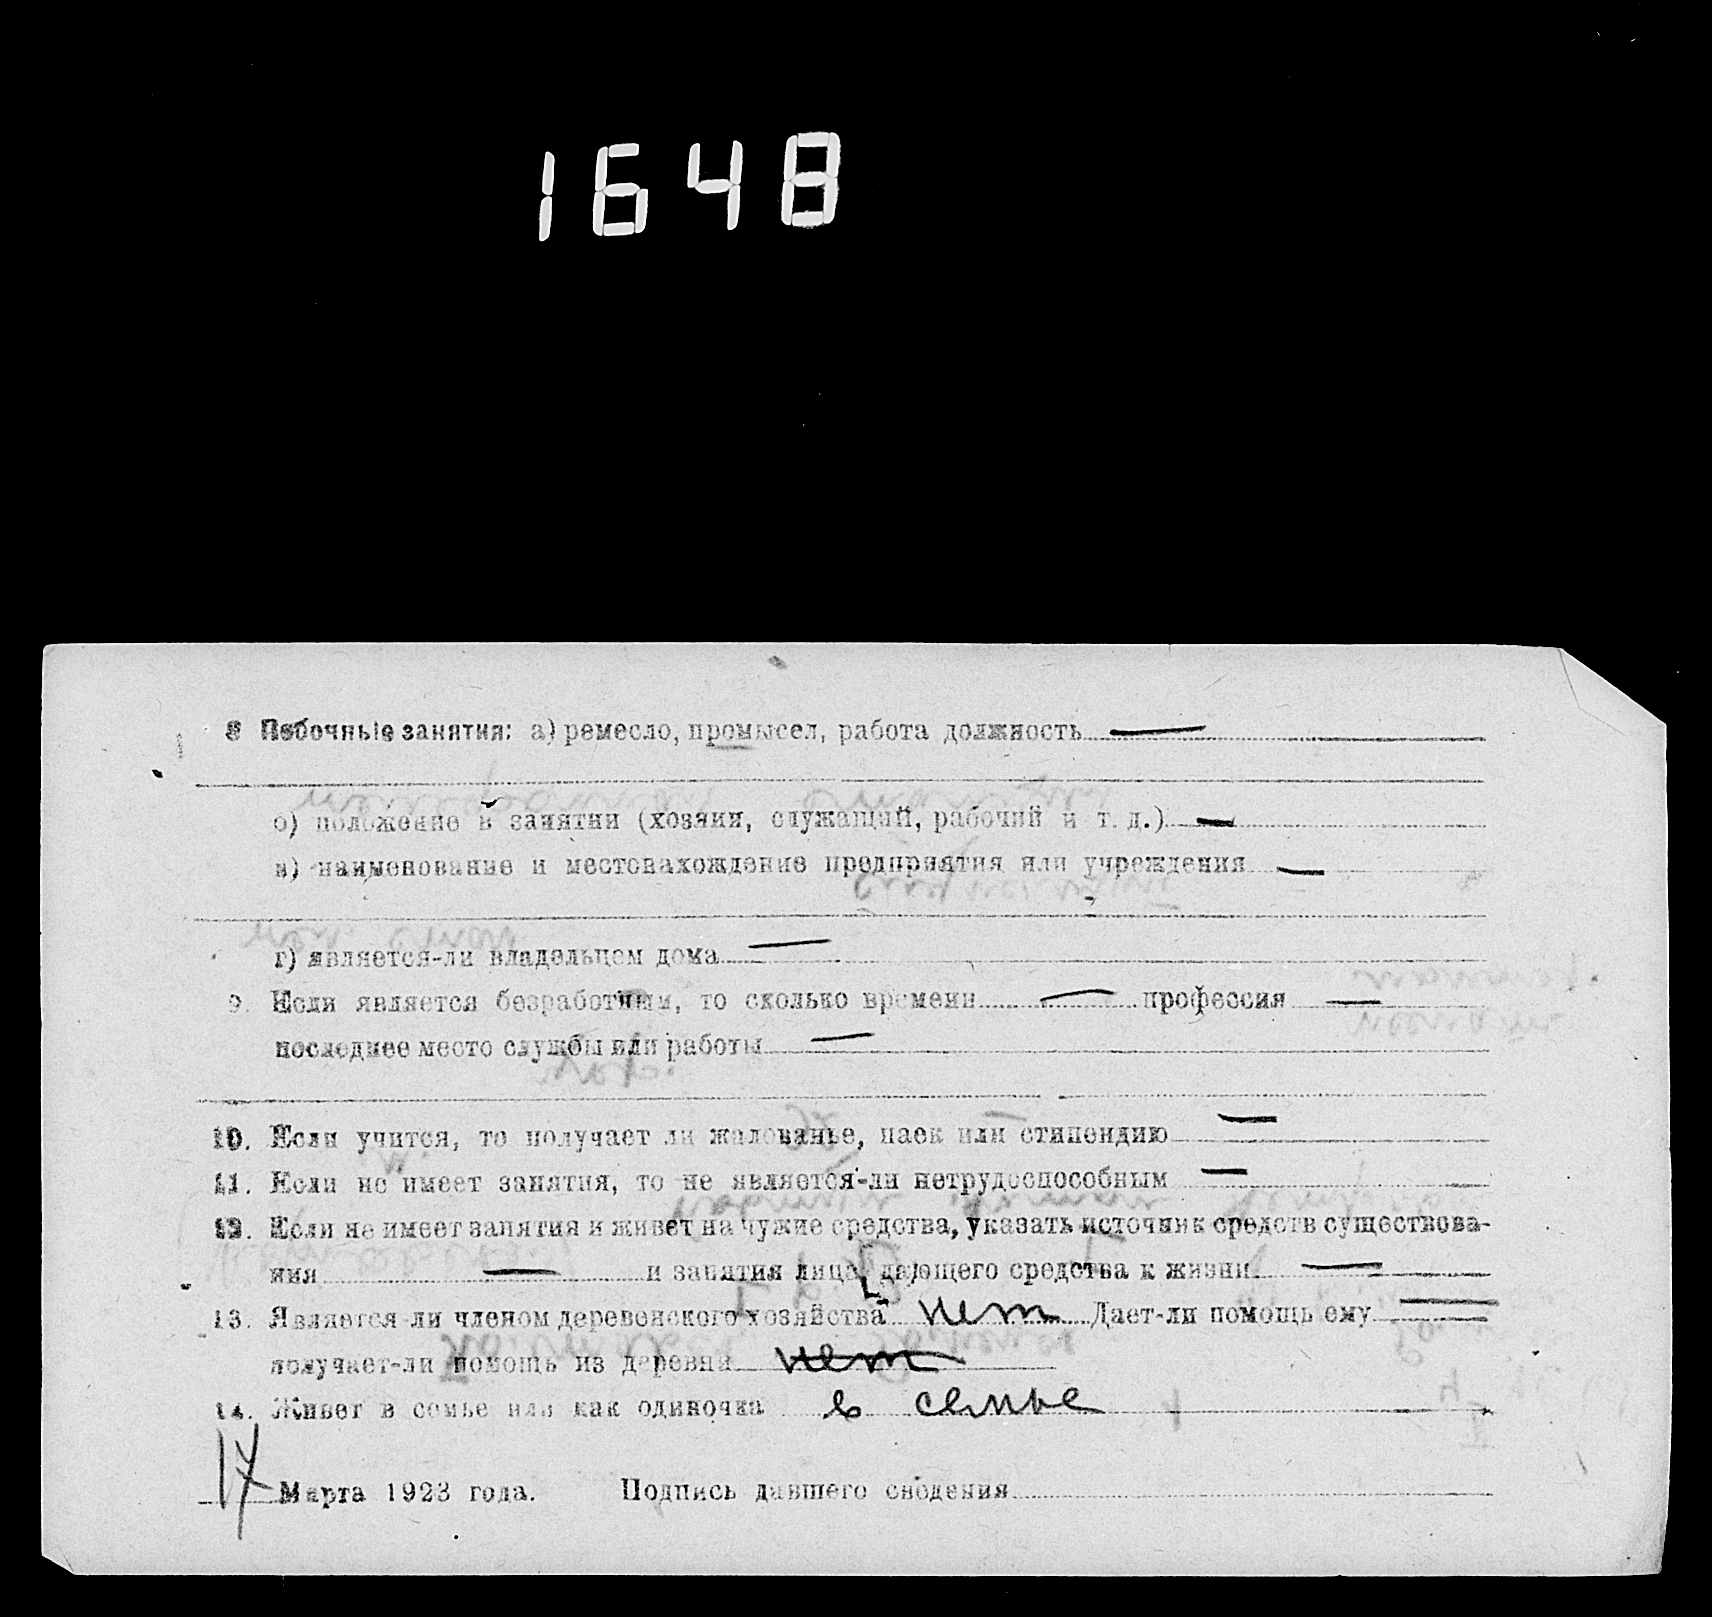 1648
8 Побочные занятия: а) ремесло, промысел, работа должность —
о) положение в занятии (хозяин, служащий, рабочий и т. д.) —
в) наименование и местонахождение предприятия или учреждения —
г) является-ли владельцем дома —
9. Если является безработным, то сколько времени — профессия —
последнее место службы или работы —
10. Если учится, то получает ли жалованье, паек или стипендию —
11. Если не имеет занятия, то не является-ли нетрудоспособным —
12. Если не имеет занятия и живет на чужие средства, указать источник средств существова-
ния — и занятия лица, дающего средства к жизни —
13. Является-ли членом деревенского хозяйства нет Дает-ли помощь ему —
получает-ли помощь из деревни нет
14. Живет в семье или как одиночка в семье
17 Марта 1923 года. Подпись давшего сведения